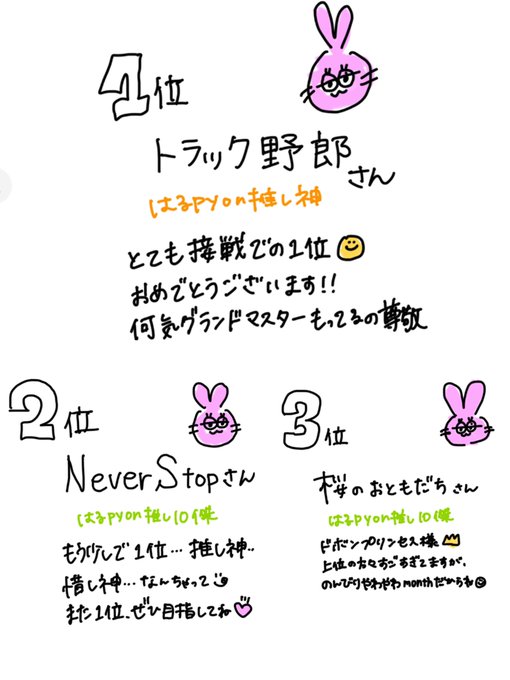 1位
トラック野郎さん
はるpyon推し神
とても接戦での1位
おめでとうございます!!
何気グランドマスターもってるの尊敬
2位
NeverStopさん
はるpyon推し10傑
もう少しで1位…推し神..
惜し神…なんちゃって
また1位、ぜひ目指してね
3位
桜のおともだちさん
はるpyon推し10傑
ドボンプリンセス様
上位の方々すごすぎてますが、
のんびりやわやわmonthだからね